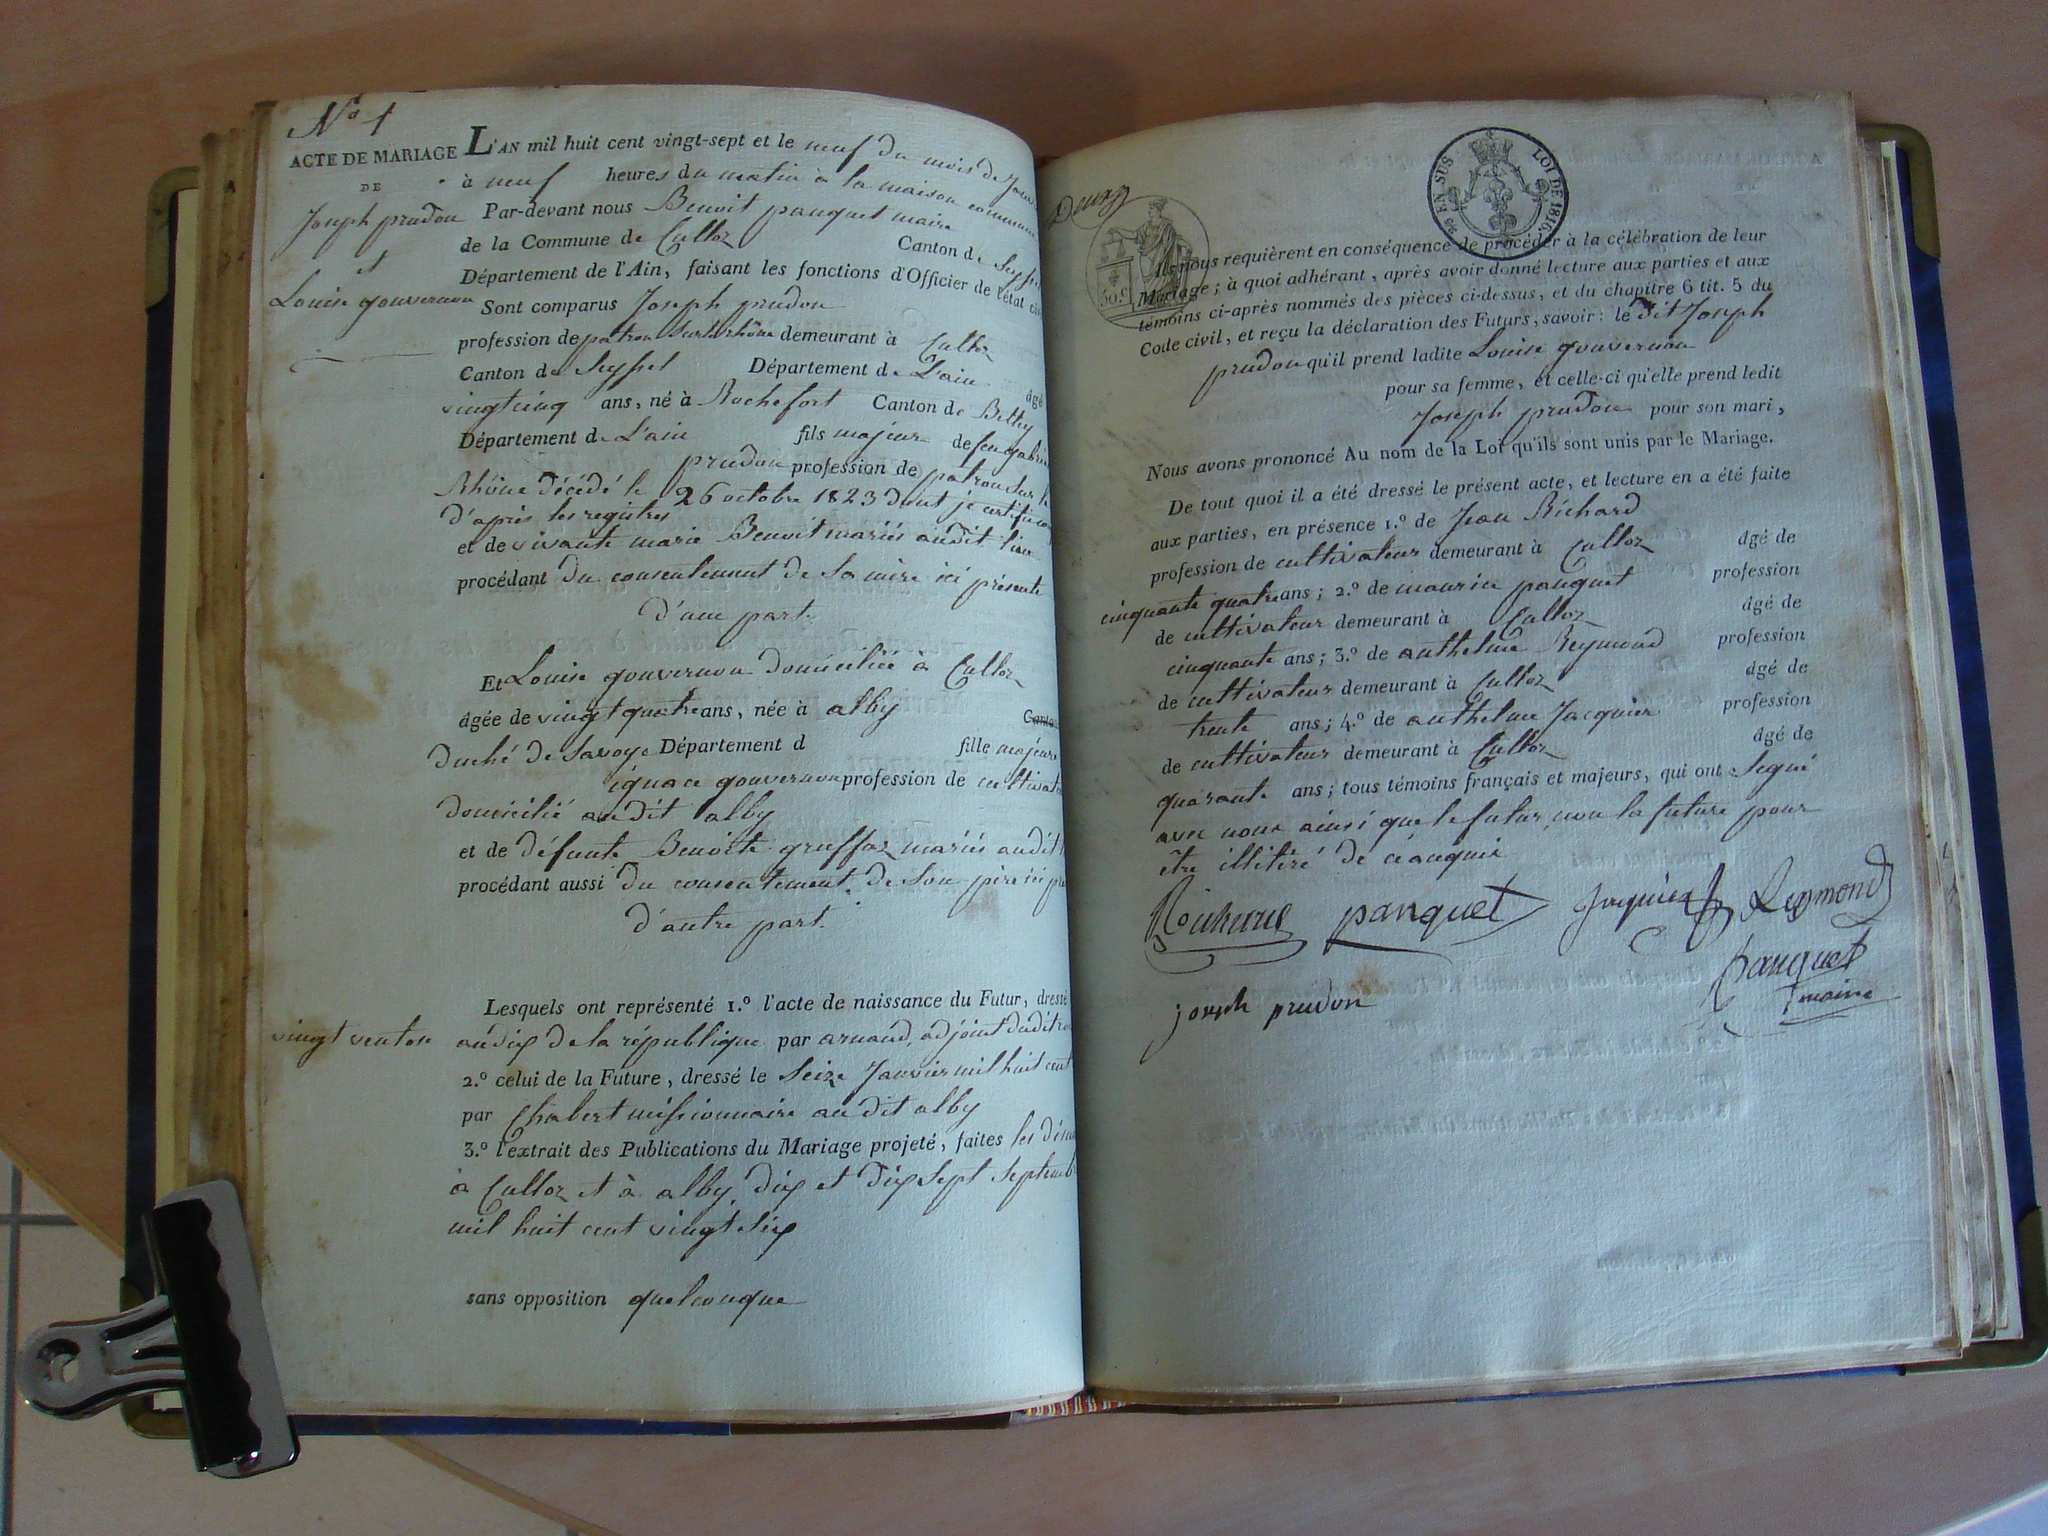 N° 1
ACTE DE MARIAGE
DE
Joseph prudon
et
Louise gouvernon
L'AN mil huit cent vingt-sept et le neuf du mois de
à neuf heures du matin à la maison commune
Par-devant nous Benoit panquet maire
de la Commune de Culloz Canton de Seyssel
Département de l'Ain, faisant les fonctions d'Officier de l'état ci
Sont comparus Joseph prudon
profession de patron sur le rhône demeurant à Culloz
Canton de Seyssel Département de L'ain âgé
vingt cinq ans, né à Rochefort Canton de Belley
Département de L'ain fils majeur de feu gabri
prudon profession de patron sur le
Rhône décédé le 26 octobre 1823 dont je certifie
d'après les registres
et de vivante marie Benoit mariés audit lieu
procédant du consentement de sa mère ici présente
d'une part.
Et Louise gouvernon domiciliée à Culloz
âgée de vingt quatre ans, née à alby Canto
duché de Savoye Département d fille majeure
ignace gouvernon profession de cultivat
domicilié au dit alby
et de défunte Benoite gruffaz mariés audit
procédant aussi du consentement de son père ici pré
d'autre part.
Lesquels ont représenté 1.° l'acte de naissance du Futur, dressé
vingt ventose an dix de la république par arnaud, adjoint dudit
2.° celui de la Future, dressé le Seize Janvier mil huit cent
par Chabert missionnaire au dit alby
3.° l'extrait des Publications du Mariage projeté, faites les
à Culloz et à alby, dix et dix sept septemb
mil huit cent vingt six
sans opposition quelconque
EN SUS LOI DE 1816.
50 c
Ils nous requièrent en conséquence de procéder à la célébration de leur
Mariage; à quoi adhérant, après avoir donné lecture aux parties et aux
témoins ci-après nommés des pièces ci-dessus, et du chapitre 6 tit. 5 du
Code civil, et reçu la déclaration des Futurs, savoir: le dit Joseph
prudon qu'il prend ladite Louise gouvernon
pour sa femme, et celle-ci qu'elle prend ledit
Joseph prudon pour son mari,
Nous avons prononcé Au nom de la Loi qu'ils sont unis par le Mariage.
De tout quoi il a été dressé le présent acte, et lecture en a été faite
aux parties, en présence 1.° de Jean Richard
profession de cultivateur demeurant à Culloz âgé de
cinquante quatre ans; 2.° de maurice panquet profession
de cultivateur demeurant à Culloz âgé de
cinquante ans; 3.° de anthelme Reymond profession
de cultivateur demeurant à Culloz âgé de
trente ans; 4.° de anthelme Jacquier profession
de cultivateur demeurant à Culloz âgé de
quarante ans; tous témoins français et majeurs, qui ont signé
avec nous ainsi que le futur, non la future pour
être illitéré de ce enquis
panquet Jaquier Reymond
panquet
maire
joseph prudon